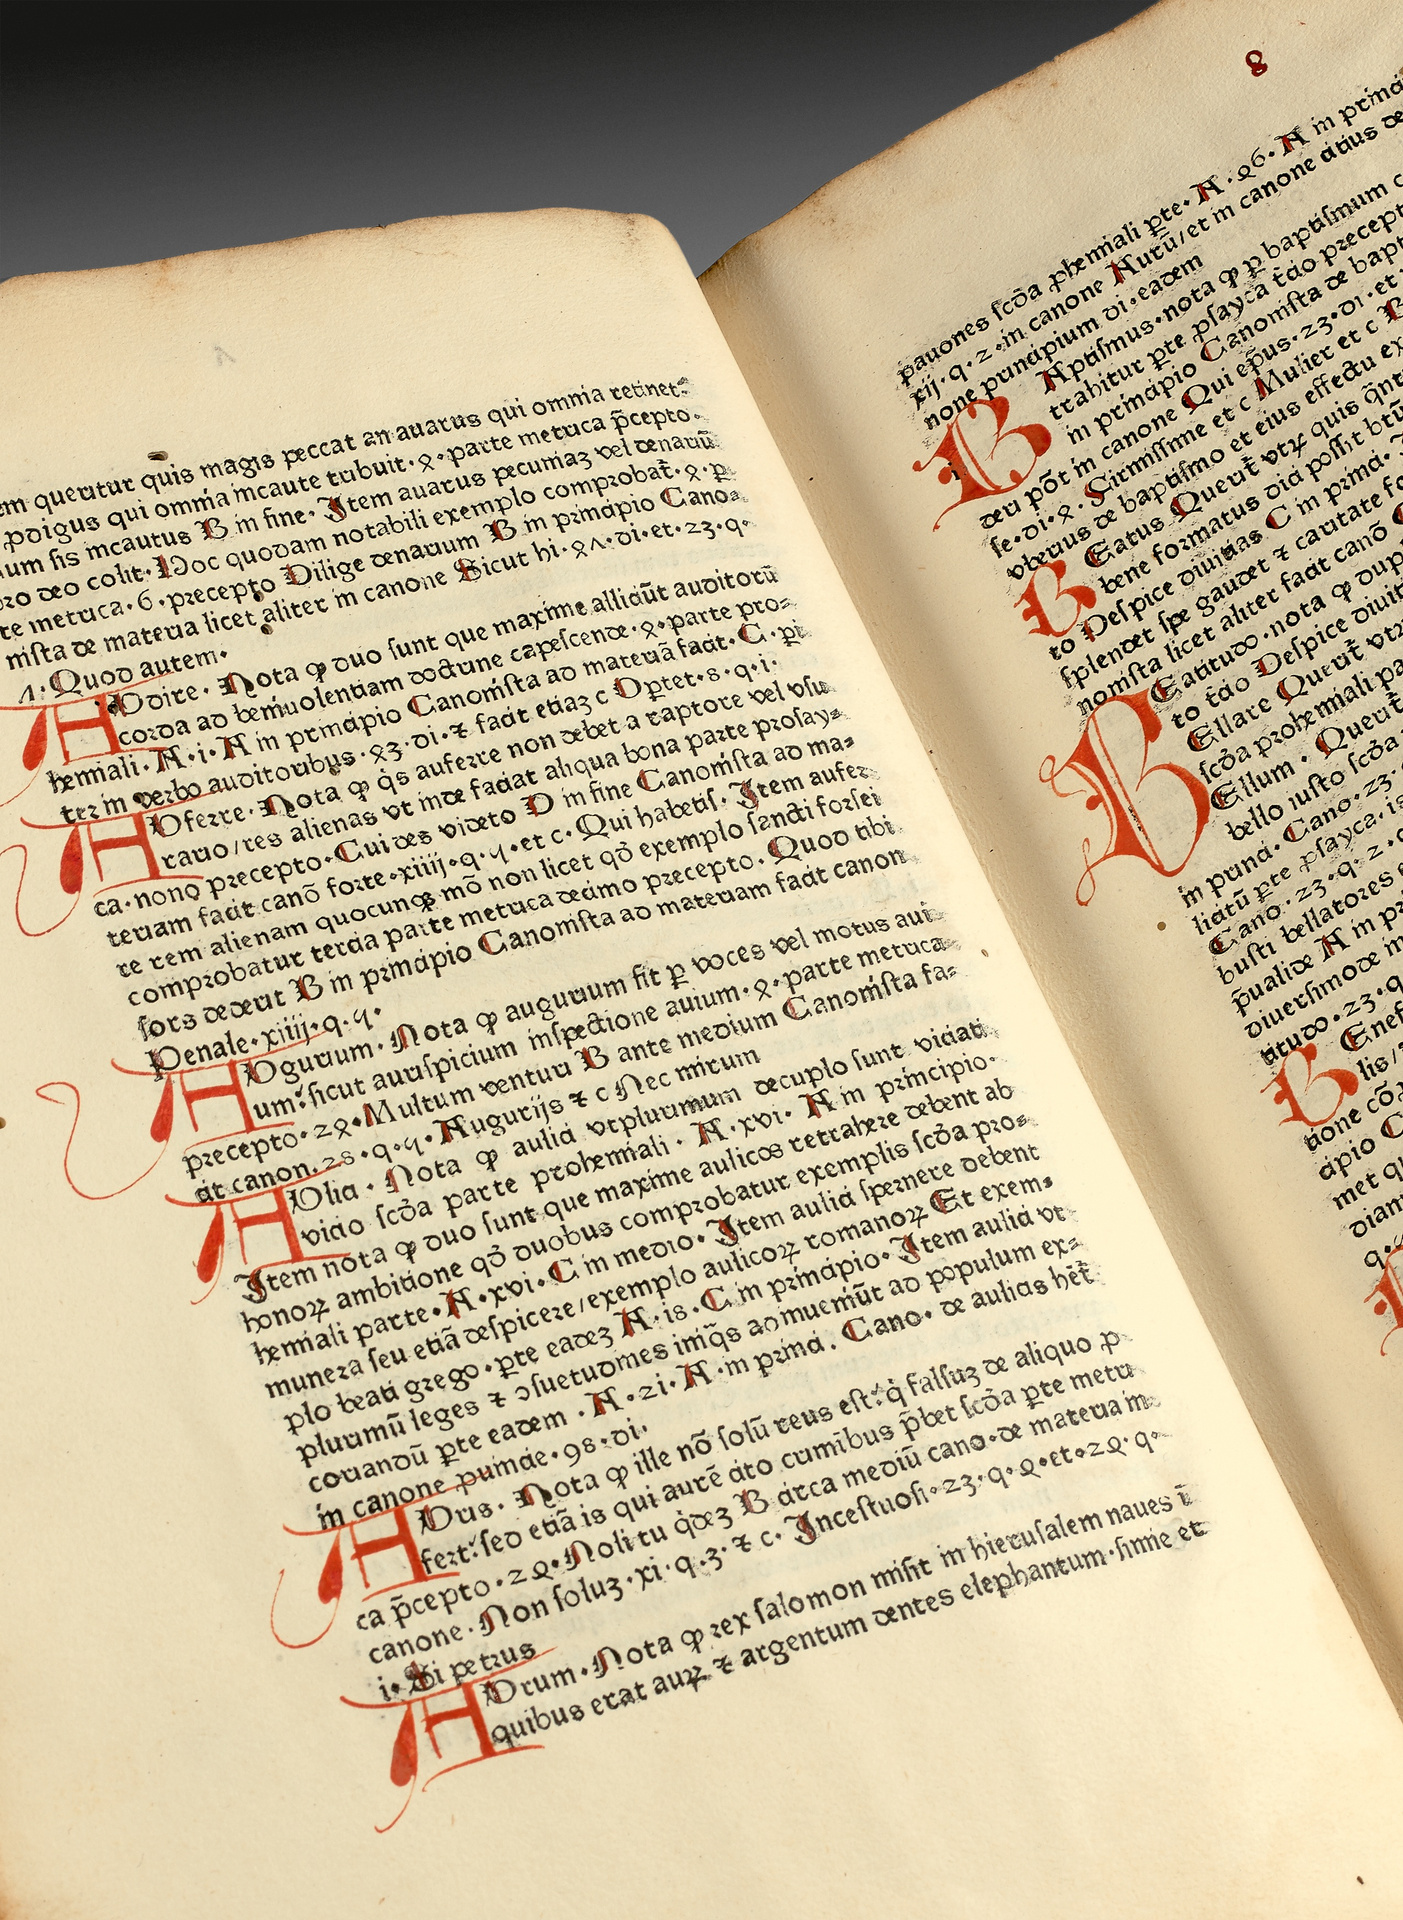 em queritur quis magis peccat an auarus qui omnia retinet
ꝓdigus qui omnia incaute tribuit·ꝝ·parte metrica p̄cepto·
um sis incautus B in fine· Item auarus pecuniaꝫ vel denariū
pro deo colit·Hoc quodam notabili exemplo comprobat̄·
te metrica·6·precepto Dilige denarium B in principio Cano⸗
nista de materia licet aliter in canone Sicut hi· di·et·23·q·
1·Quod autem·
AUdire·Nota ꝙ duo sunt que maxime alliciūt auditorū
corda ad beniuolentiam doctrine capescende· parte pro⸗
hemiali·A·i·A in principio Canonista ad materiā facit·C·
ter in verbo auditoribus· di·⁊ facit etiaꝫ c Oꝑtet·s·q·i·
AUferre·Nota ꝙ q̇s auferre non debet a raptore vel vsu
rario/res alienas vt inde faciat aliqua bona parte prosay⸗
ca·nono precepto·Cui des videto D in fine Canonista ad ma⸗
teriam facit canō forte·xiiii·q· et c·Qui habetis·Item aufer
re rem alienam quocunqꝫ mō non licet qd̄ exemplo sancti forsei
comprobatur tercia parte metrica decimo precepto·Quod tibi
fors dederit B in principio Canonista ad materiam facit canon
Penale·xiiij·q·
AUgurium·Nota ꝙ augurium fit ꝑ voces vel motus aui
um·sicut auruspicium inspectione auium· parte metrica
precepto· Multum venturi B ante medium Canonista fa⸗
cit canon· q· Augurijs ⁊ c Nec mirum
AUlici·Nota ꝙ aulici vtplurimum decuplo sunt viciati
vicio scd̄a parte prohemiali·A·xvi·A in principio·
Item nota ꝙ duo sunt que maxime aulicos retrahere debent ab
honoꝝ ambitione qd̄ duobus comprobatur exemplis scd̄a pro⸗
hemiali parte·A·xvi·C in medio·Item aulici spernere debent
munera seu etiā despicere/exemplo aulicoꝝ romanoꝝ Et exem⸗
plo beati grego·ꝑte eadeꝫ A·is·C in principio·Item aulici vt
plurimū leges ⁊ ꝯsuetudines iniq̇s adinueniūt ad populum ex⸗
coriandū ꝑte eadem·A·2i·A·in princi·Cano·de aulicis hēt̄
in canone pūmcie·98·di·
AUris·Nota ꝙ ille nō solū reus est: q̇ falsuꝫ de aliquo
fert:sed etiā is qui aurē cito criminibus p̄bet scd̄a ꝑte metri
ca p̄cepto· Noli tu q̇deꝫ B circa mediū cano·de materia in
canone·Non soluꝫ·xi·q·3·⁊ c·Incestuosi·23·q· et· q·
i·Si petrus
AUrum·Nota ꝙ rex salomon misit in hierusalem naues ī
quibus erat auꝝ ⁊ argentum dentes elephantum·simie et
8
pauones scd̄a ꝓhemiali ꝑte·A· 6·A in princi
xij·q·2·in canone Aurū/et in canone citius de
none principium di·eadem
BAptismus·nota ꝙ ꝑ baptismum
trahitur ꝑte ꝓsayca t̄cio precept
in principio Canonista de bapt
deri pōt in canone Qui ep̄us·23·di·et
se·di· Firmissime et c Mulier et c
vberius de baptismo et eius effectu
BEatus Querit̄ vtꝝ quis
bene formatus dici possit
to Despice diuitias C in prima·
splendet spe gaudet ⁊ caritate
nomista licet aliter facit canō
BEatitudo·nota ꝙ dup
to t̄cio Despice diuit
Ellare Querit̄ vtꝝ
scd̄a prohemiali pa
BEllum·Querit̄
bello iusto scd̄a
in princi·Cano·23·
licitū ꝑte ꝓsayca·
Cano·23·q·2·
busti bellatores
p̄ualide A in pr
diuersimode
titudo·23·q
BEnef
lis/
tione
cipio
met
dian
q·